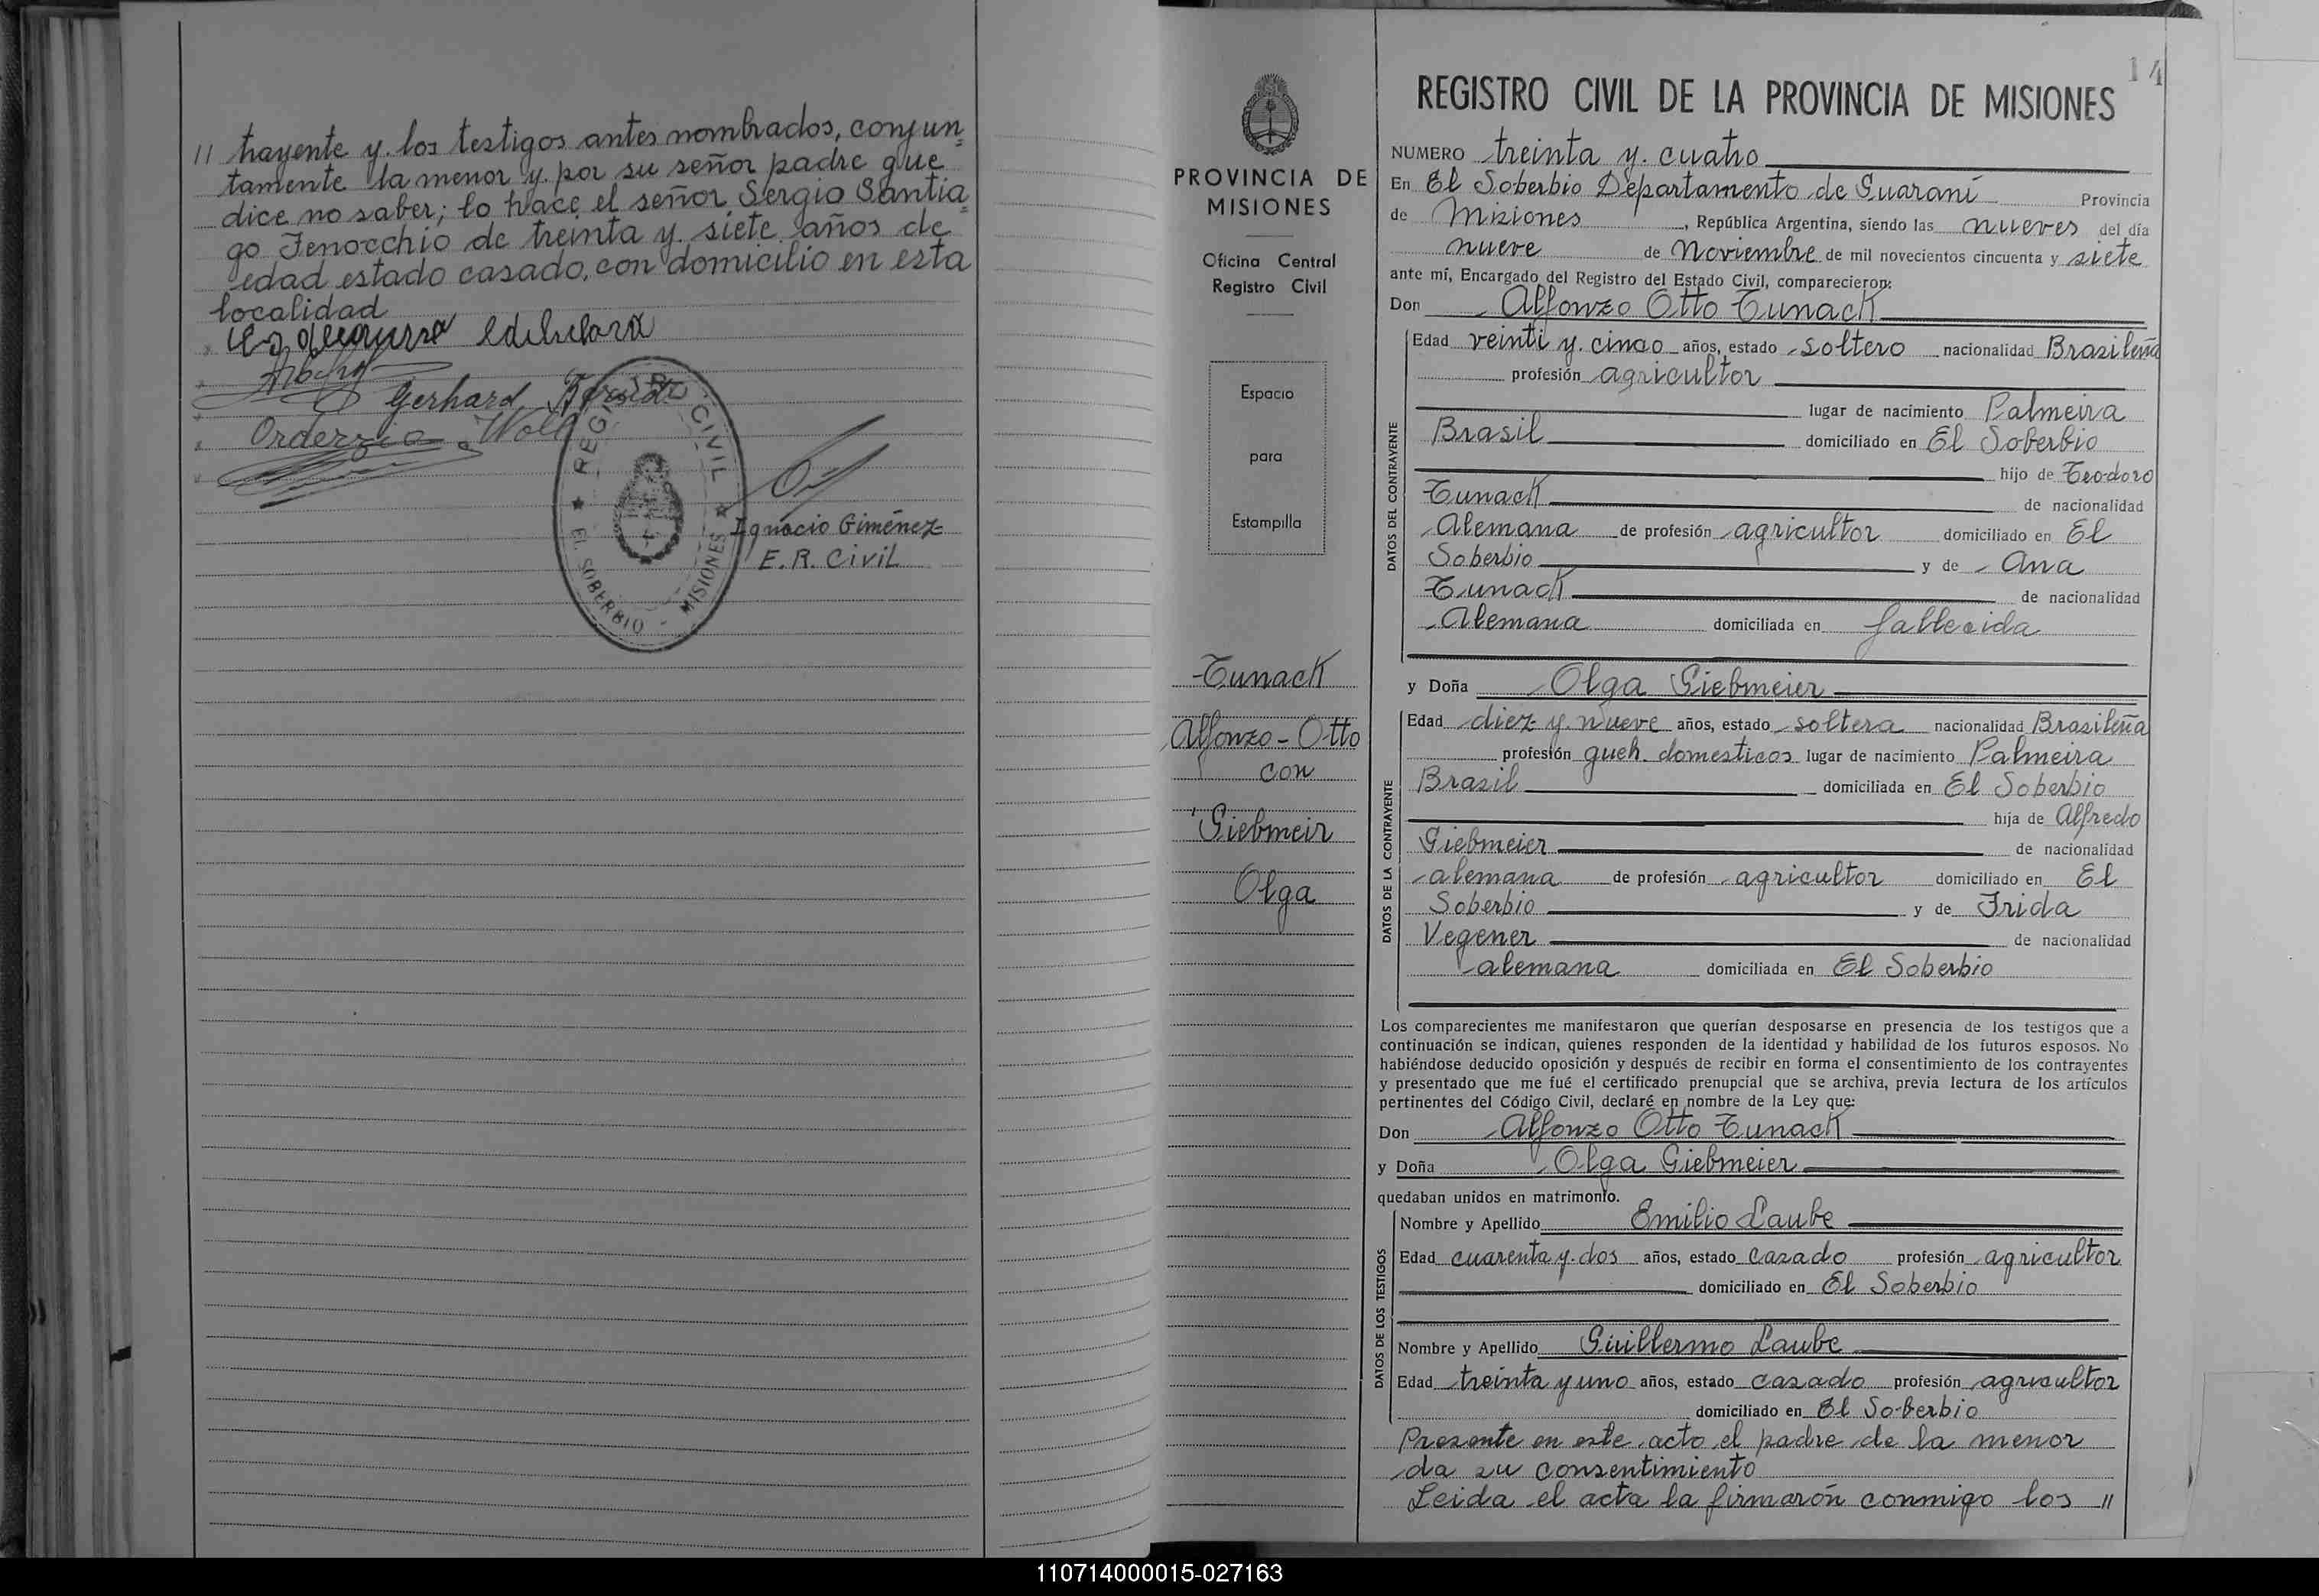 // trayente y los testigos antes nombrados, conjun=
tamente la menor y por su señor padre que
dice no saber; lo hace el señor Sergio Santia=
go Fenocchio de treinta y siete años de
edad estado casado, con domicilio en esta
localidad
Gerhard
Orderzia Woll
REGISTRO CIVIL
EL SOBERBIO - MISIONES
Ignacio Giménez
E. R. Civil
PROVINCIA DE
MISIONES
Oficina Central
Registro Civil
Espacio
para
Estampilla
Tunack
Alfonzo - Otto
con
Giebmeir
Olga
14
REGISTRO CIVIL DE LA PROVINCIA DE MISIONES
NUMERO treinta y cuatro
En El Soberbio Departamento de Guaraní Provincia
de Misiones, República Argentina, siendo las nueves del día
nueve de Noviembre de mil novecientos cincuenta y siete
ante mí, Encargado del Registro del Estado Civil, comparecieron:
Don Alfonzo Otto Tunack
DATOS DEL CONTRAYENTE
Edad veinti y cinco años, estado soltero nacionalidad Brasileña
profesión agricultor
lugar de nacimiento Palmeira
Brasil domiciliado en El Soberbio
hijo de Teodoro
Tunack de nacionalidad
Alemana de profesión agricultor domiciliado en El
Soberbio y de Ana
Tunack de nacionalidad
Alemana domiciliada en fallecida
y Doña Olga Giebmeier
DATOS DE LA CONTRAYENTE
Edad diez y nueve años, estado soltera nacionalidad Brasileña
profesión queh. domesticos lugar de nacimiento Palmeira
Brasil domiciliada en El Soberbio
hija de Alfredo
Giebmeier de nacionalidad
alemana de profesión agricultor domiciliado en El
Soberbio y de Frida
Vegener de nacionalidad
alemana domiciliada en El Soberbio
Los comparecientes me manifestaron que querían desposarse en presencia de los testigos que a
continuación se indican, quienes responden de la identidad y habilidad de los futuros esposos. No
habiéndose deducido oposición y después de recibir en forma el consentimiento de los contrayentes
y presentado que me fué el certificado prenupcial que se archiva, previa lectura de los artículos
pertinentes del Código Civil, declaré en nombre de la Ley que:
Don Alfonzo Otto Tunack
y Doña Olga Giebmeier
quedaban unidos en matrimonio.
DATOS DE LOS TESTIGOS
Nombre y Apellido Emilio Laube
Edad cuarenta y dos años, estado casado profesión agricultor
domiciliado en El Soberbio
Nombre y Apellido Guillermo Laube
Edad treinta y uno años, estado casado profesión agricultor
domiciliado en El Soberbio
Presente en este acto el padre de la menor
da su consentimiento
Leida el acta la firmarón conmigo los //
110714000015-027163